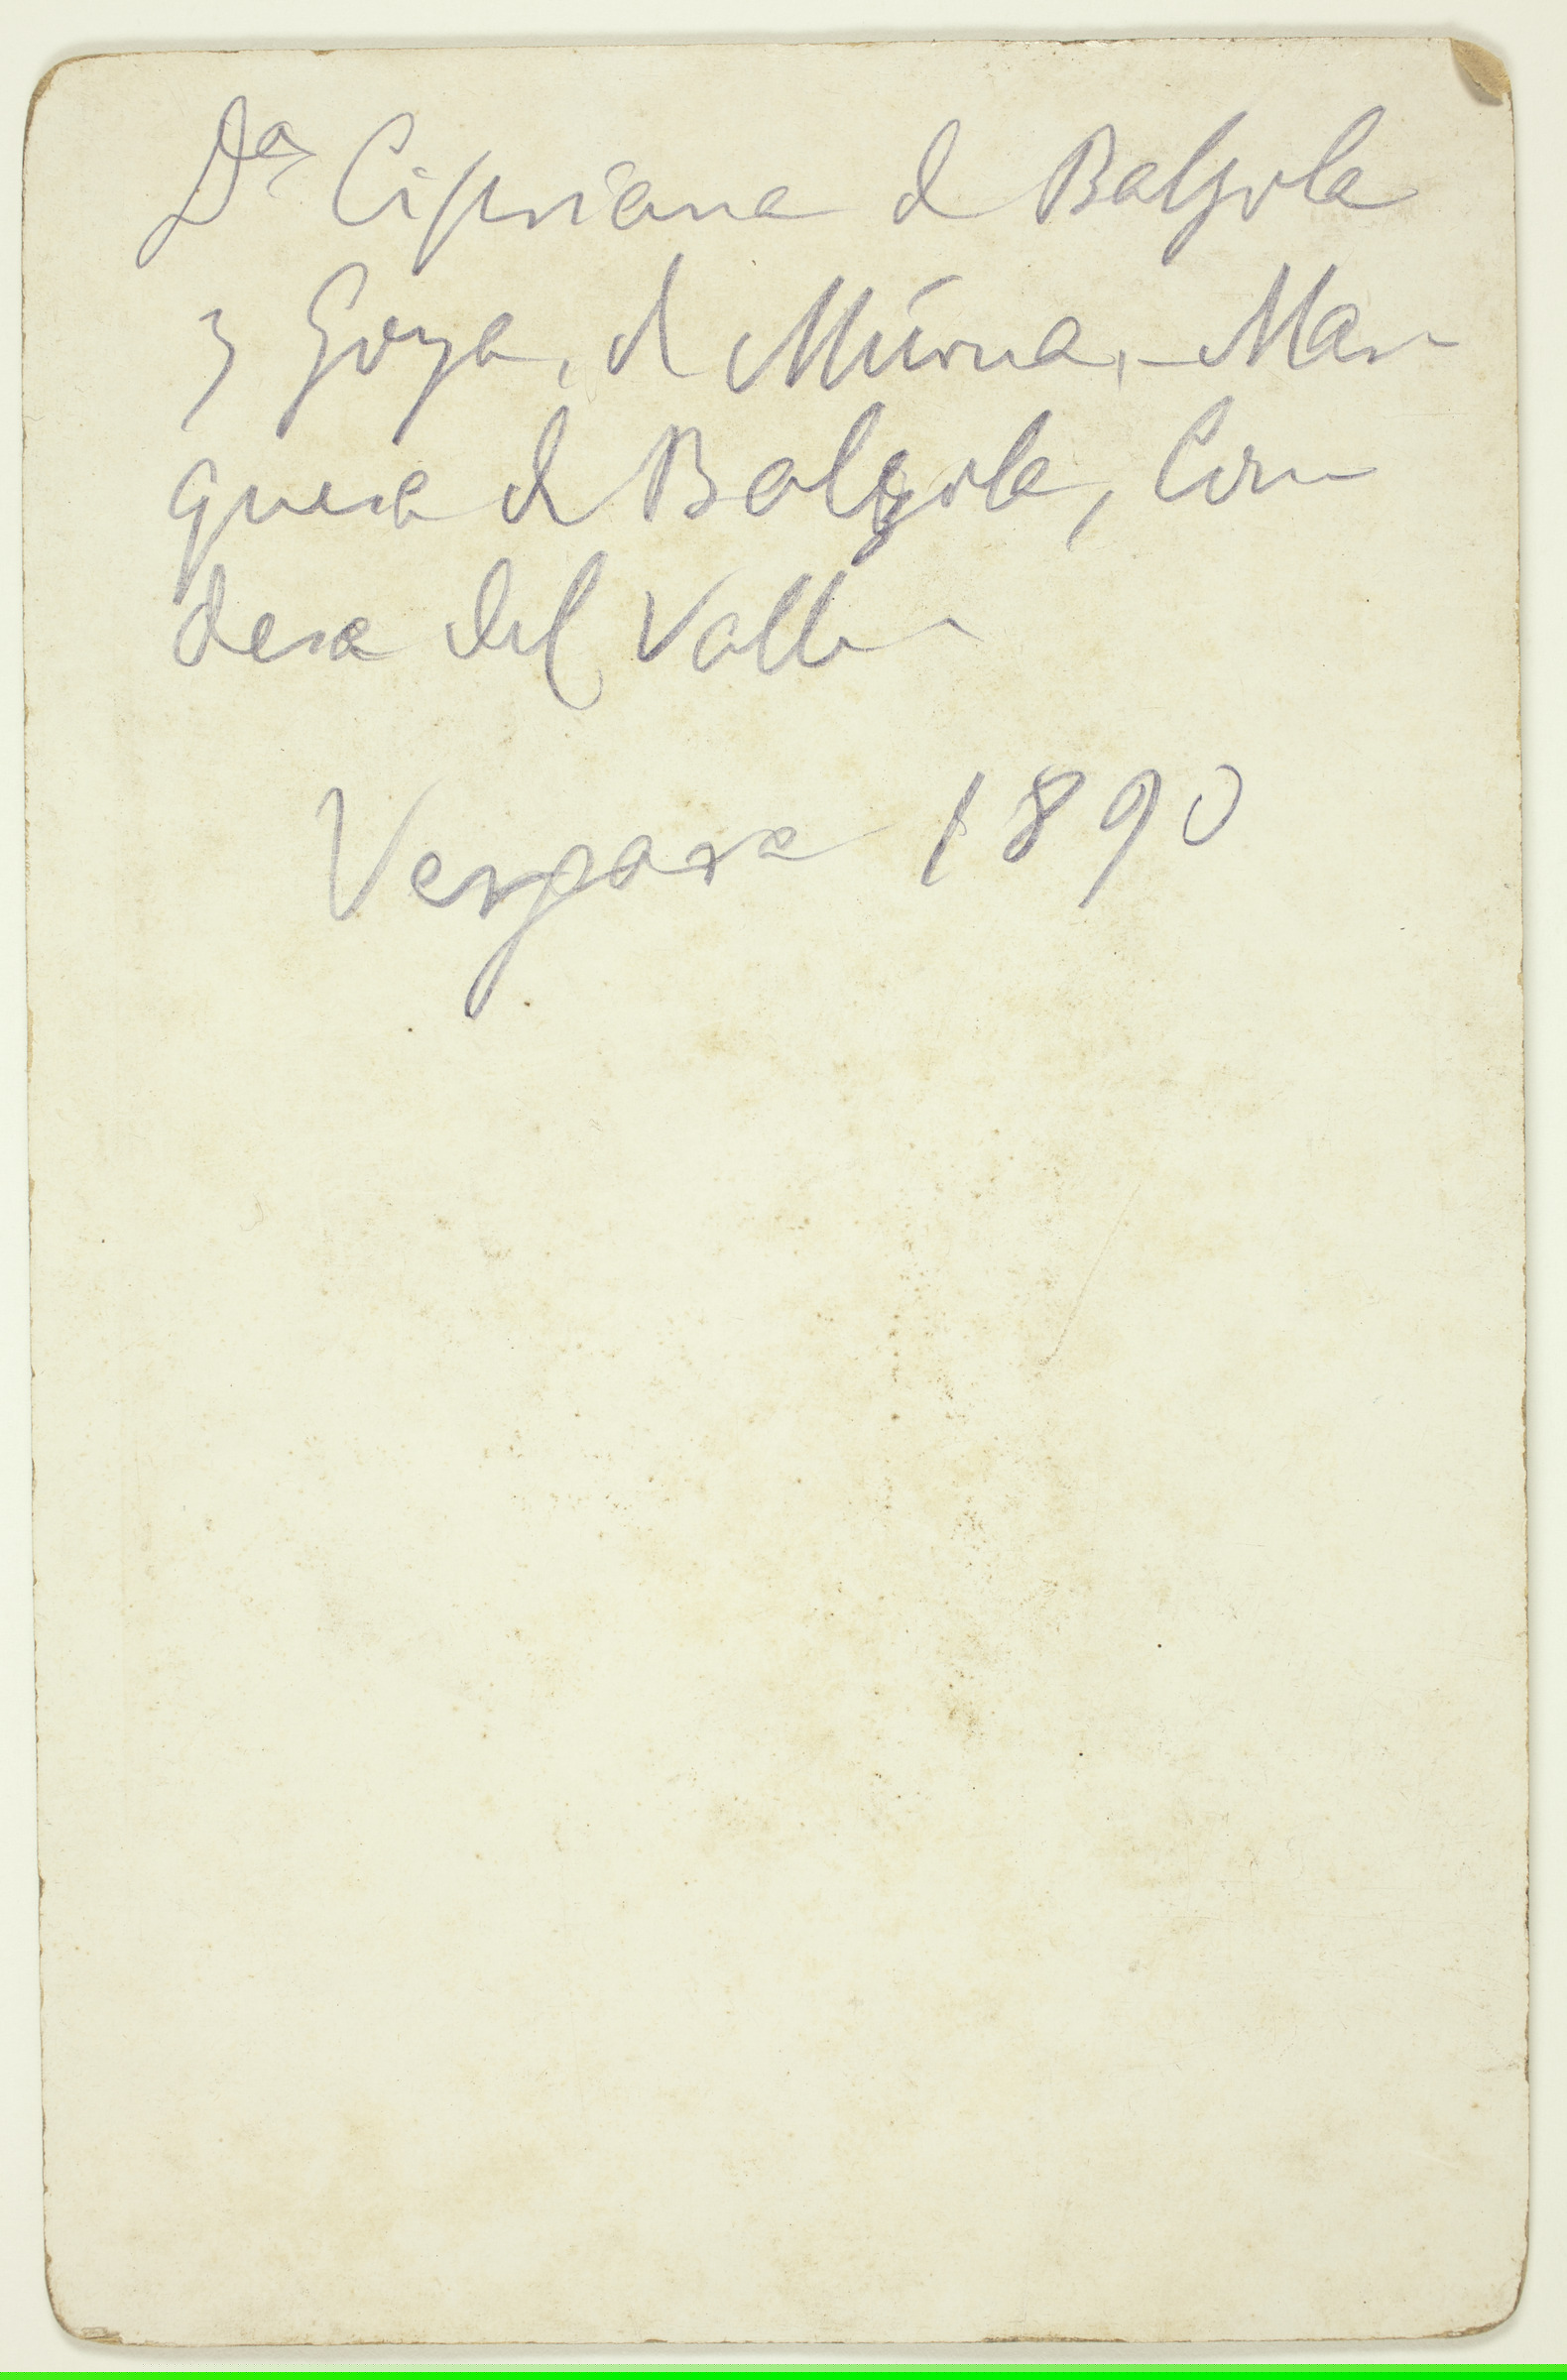 Dª Cipriana de Balzola
y Goya, de Múrua, Mar-
quesa de Balzola, Con-
desa del Valle
Vergara 1890